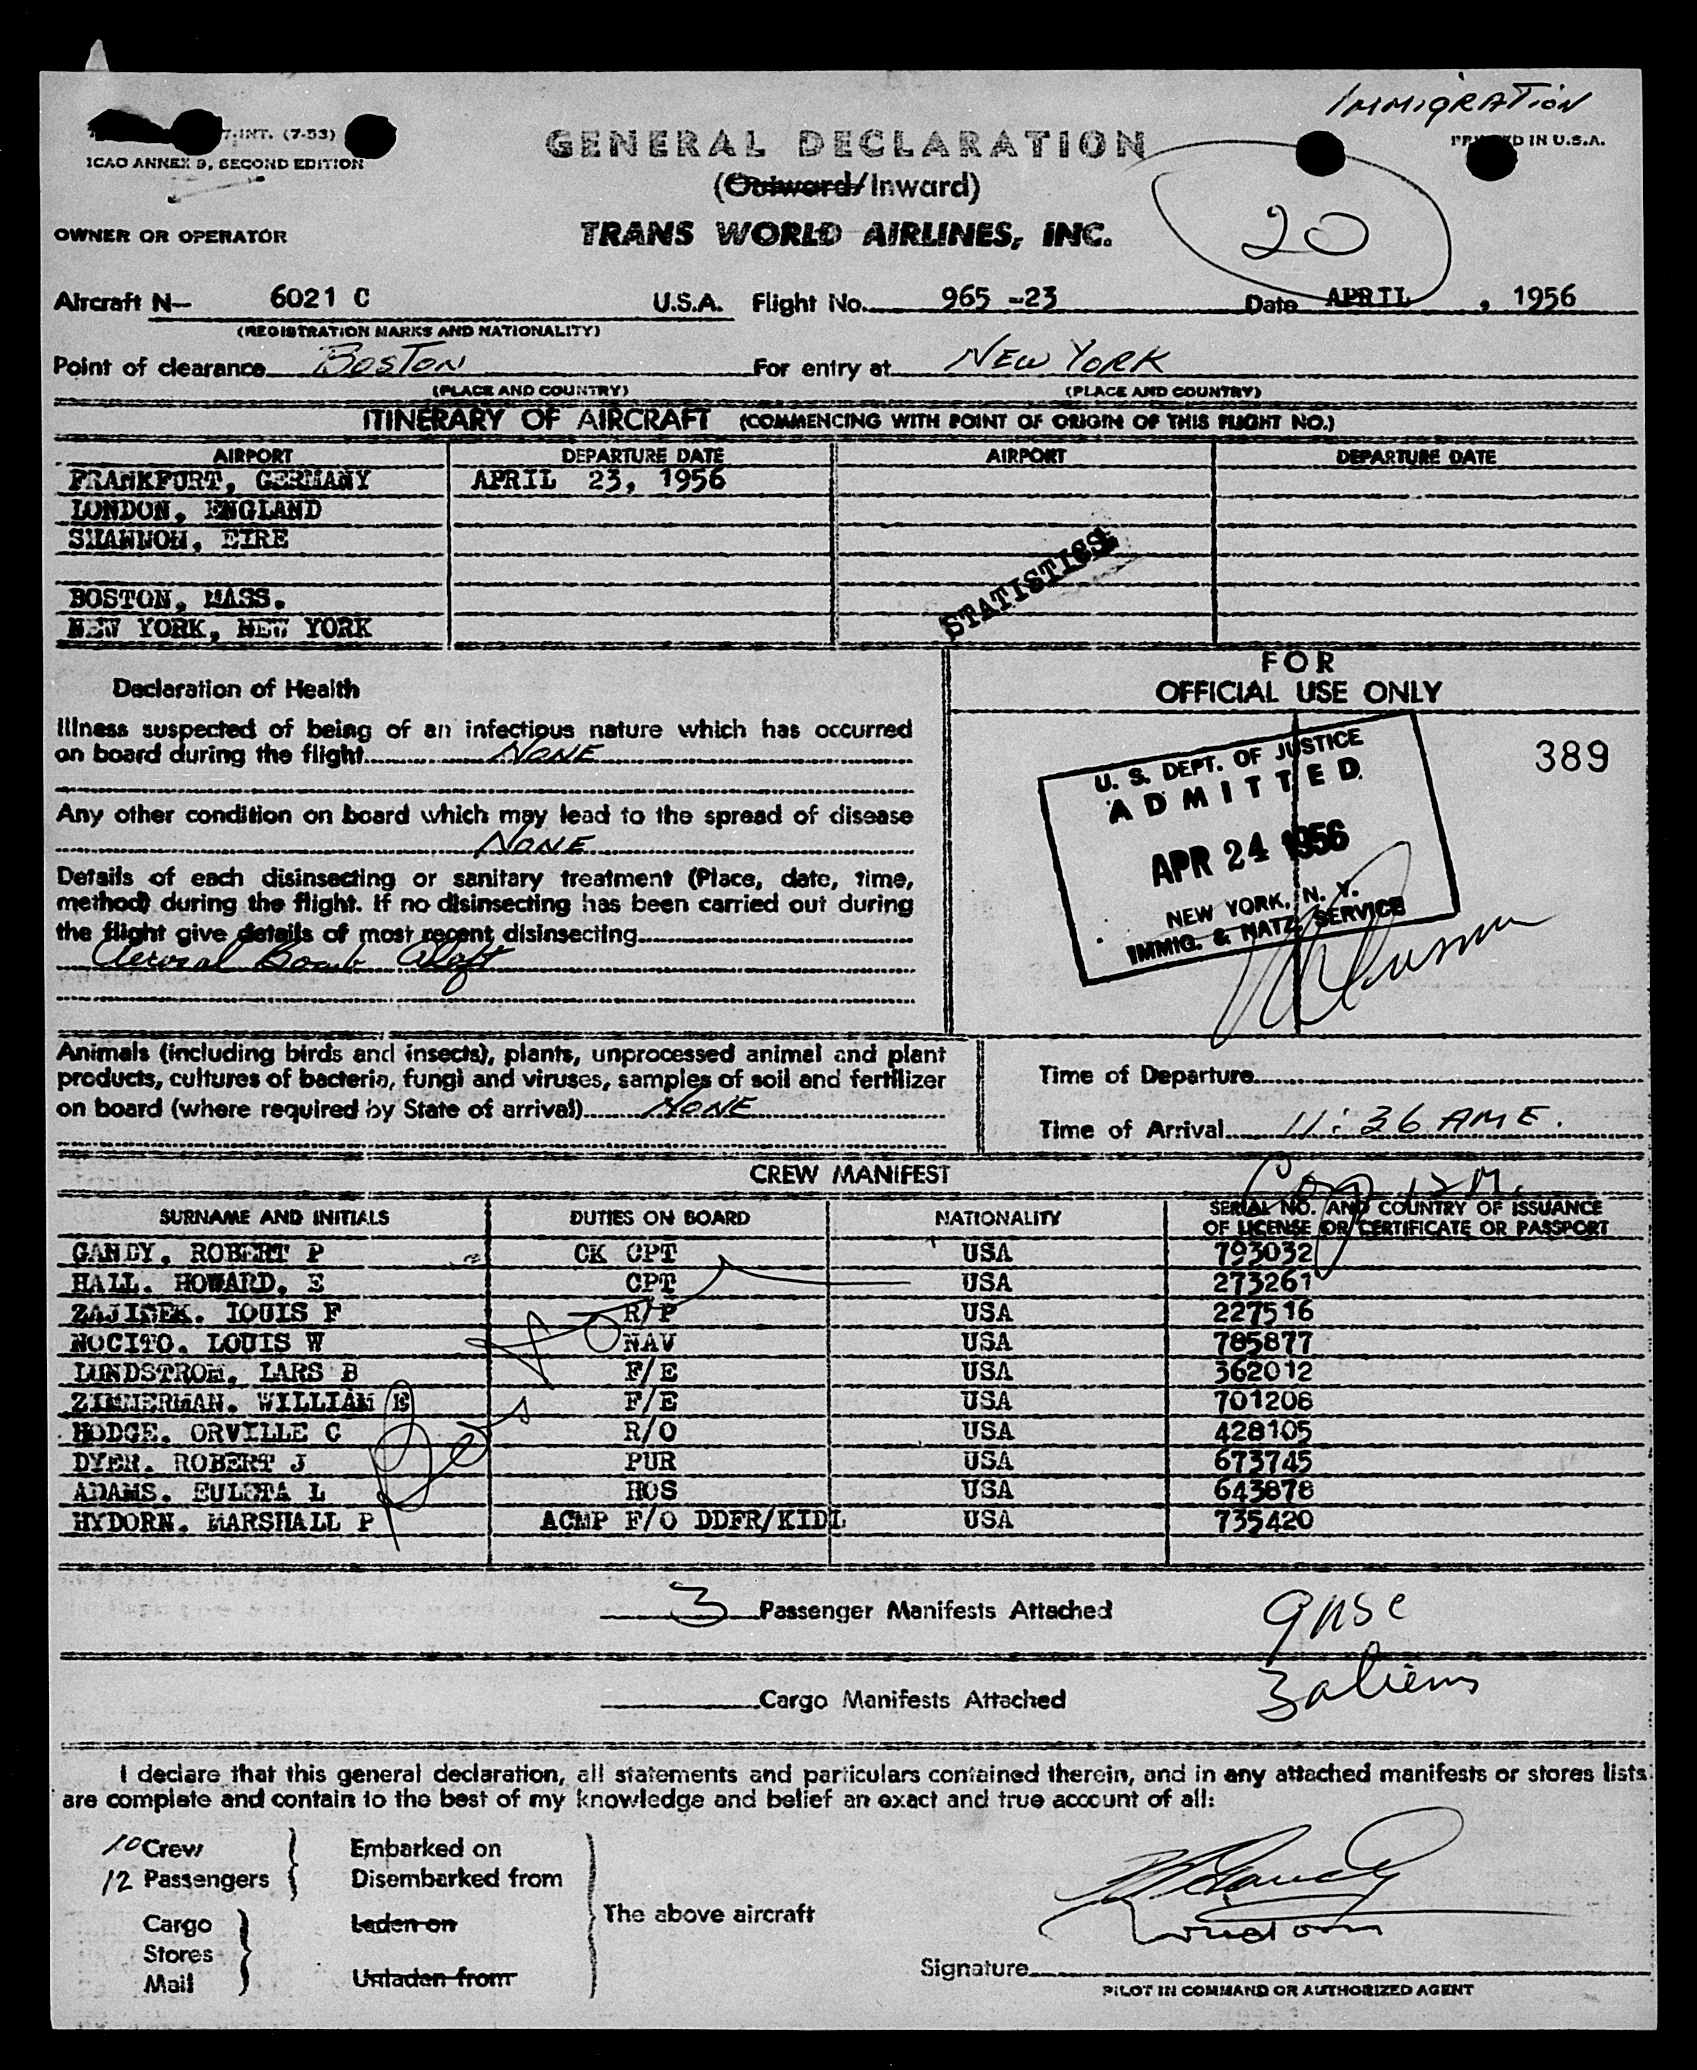 IMMIGRATION
7-INT. (7-53)
ICAO ANNEX 9, SECOND EDITION
GENERAL DECLARATION
PRINTED IN U.S.A.
(Outward/Inward)
20
OWNER OR OPERATOR
TRANS WORLD AIRLINES, INC.
Aircraft N— 6021 C U.S.A. Flight No. 965 -23 Date APRIL , 1956
(REGISTRATION MARKS AND NATIONALITY)
Point of clearance BOSTON For entry at NEW YORK
(PLACE AND COUNTRY) (PLACE AND COUNTRY)
ITINERARY OF AIRCRAFT (COMMENCING WITH POINT OF ORIGIN OF THIS FLIGHT NO.)
AIRPORT DEPARTURE DATE AIRPORT DEPARTURE DATE
FRANKFURT, GERMANY APRIL 23, 1956
LONDON, ENGLAND
SHANNON, EIRE
BOSTON, MASS.
NEW YORK, NEW YORK
STATISTICS
Declaration of Health
Illness suspected of being of an infectious nature which has occurred
on board during the flight NONE
Any other condition on board which may lead to the spread of disease
NONE
Details of each disinsecting or sanitary treatment (Place, date, time,
method) during the flight. If no disinsecting has been carried out during
the flight give details of most recent disinsecting
Aerosol Bomb Aloft
FOR
OFFICIAL USE ONLY
389
U. S. DEPT. OF JUSTICE
ADMITTED
APR 24 1956
NEW YORK, N. Y.
IMMIG. & NATZ. SERVICE
Animals (including birds and insects), plants, unprocessed animal and plant
products, cultures of bacteria, fungi and viruses, samples of soil and fertilizer
on board (where required by State of arrival) NONE
Time of Departure
Time of Arrival 11:36 AM E.
CREW MANIFEST
SURNAME AND INITIALS DUTIES ON BOARD NATIONALITY SERIAL NO. AND COUNTRY OF ISSUANCE
OF LICENSE OR CERTIFICATE OR PASSPORT
GANDY, ROBERT P CK CPT USA 793032
HALL. HOWARD, E CPT USA 273261
ZAJICEK. LOUIS F R/P USA 227516
NOCITO. LOUIS W NAV USA 785877
LUNDSTROM, LARS B F/E USA 362012
ZIMMERMAN. WILLIAM E F/E USA 701208
HODGE. ORVILLE C R/O USA 428105
DYER. ROBERT J PUR USA 673745
ADAMS. EULETA L HOS USA 643878
HYDORN. MARSHALL P ACMP F/O DDFR/KIDL USA 735420
3 Passenger Manifests Attached
9 USC
3 aliens
Cargo Manifests Attached
I declare that this general declaration, all statements and particulars contained therein, and in any attached manifests or stores lists
are complete and contain to the best of my knowledge and belief an exact and true account of all:
10 Crew
12 Passengers
Embarked on
Disembarked from
Cargo
Stores
Mail
Laden on
Unladen from
The above aircraft
Signature
PILOT IN COMMAND OR AUTHORIZED AGENT